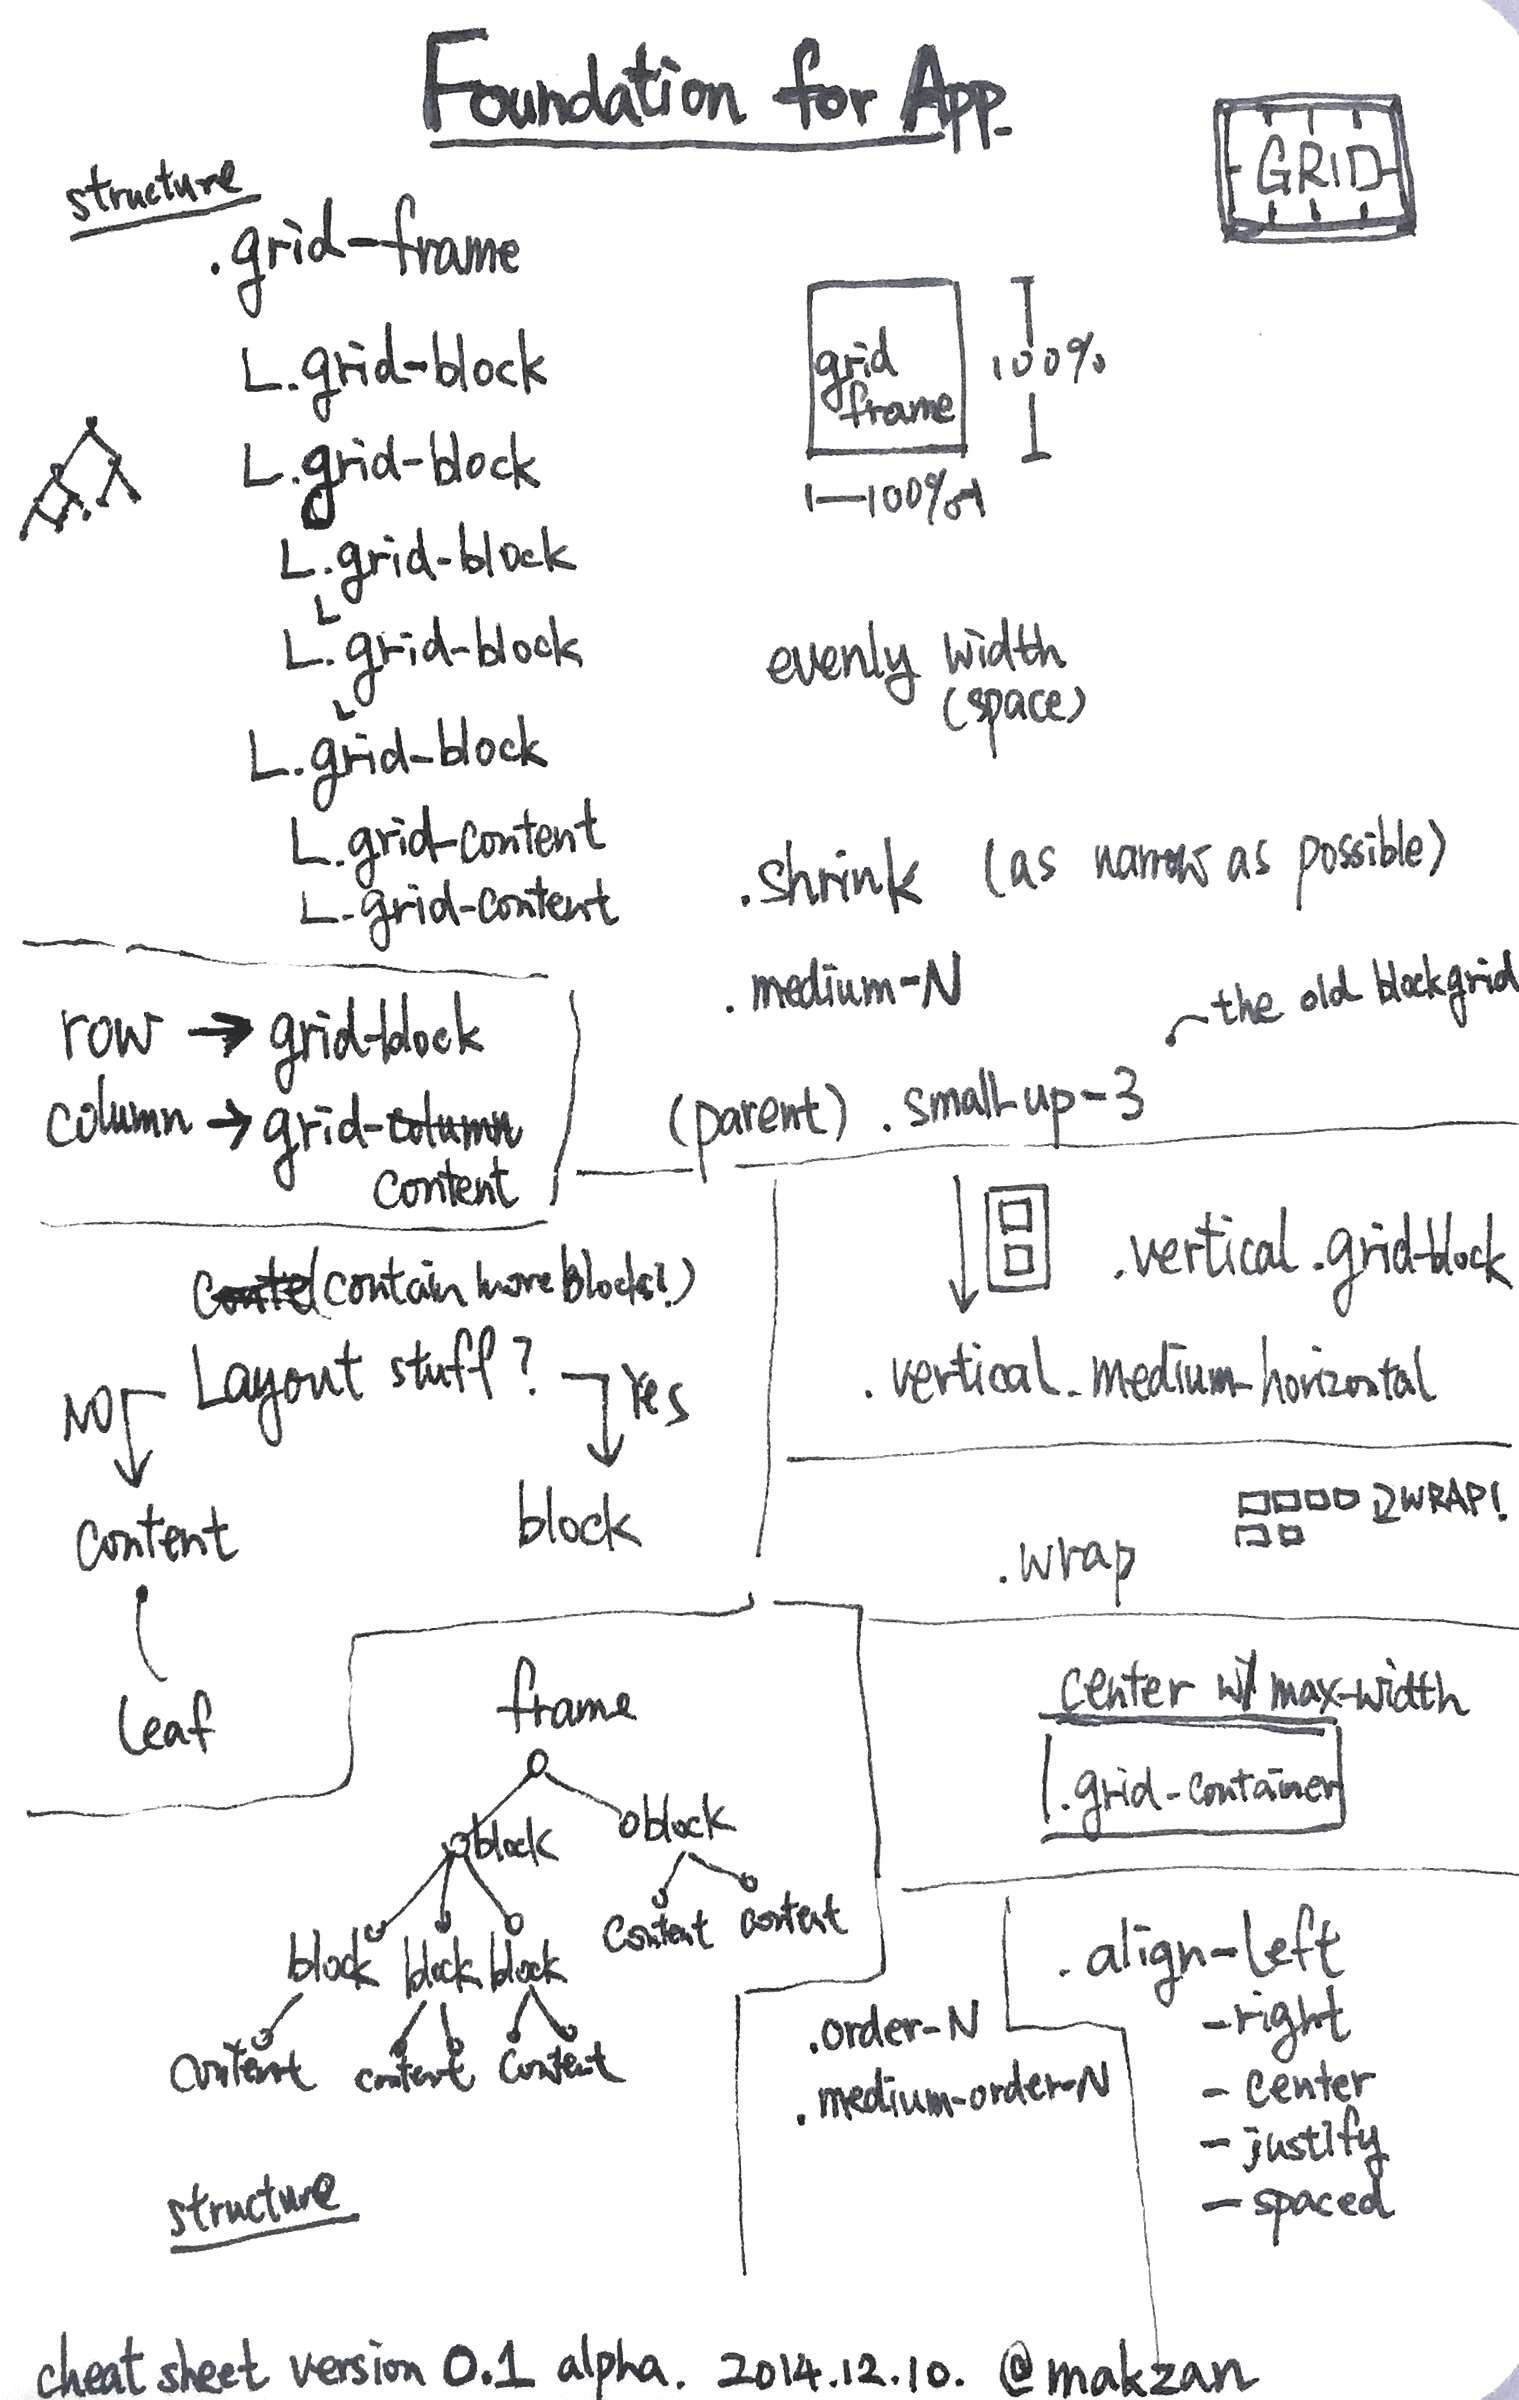 Foundation for App.
GRID
structure
.grid-frame
L.grid-block
L.grid-block
L.grid-block
L
L.grid-block
L
L.grid-block
L.grid-content
L.grid-content
grid
frame
100%
100%
evenly width
(space)
.shrink (as narrow as possible)
.medium-N
the old blockgrid
(parent) .small-up-3
row → grid-block
column → grid-column
content
(contain more blocks?)
Layout stuff?
NO
Yes
content
block
leaf
.vertical.grid-block
.vertical.medium-horizontal
WRAP!
.wrap
center w/ max-width
.grid-container
frame
block
block
block block block
content content
content content content
structure
.order-N
.medium-order-N
.align-left
-right
- center
- justify
- spaced
cheat sheet version 0.1 alpha. 2014.12.10. @makzan